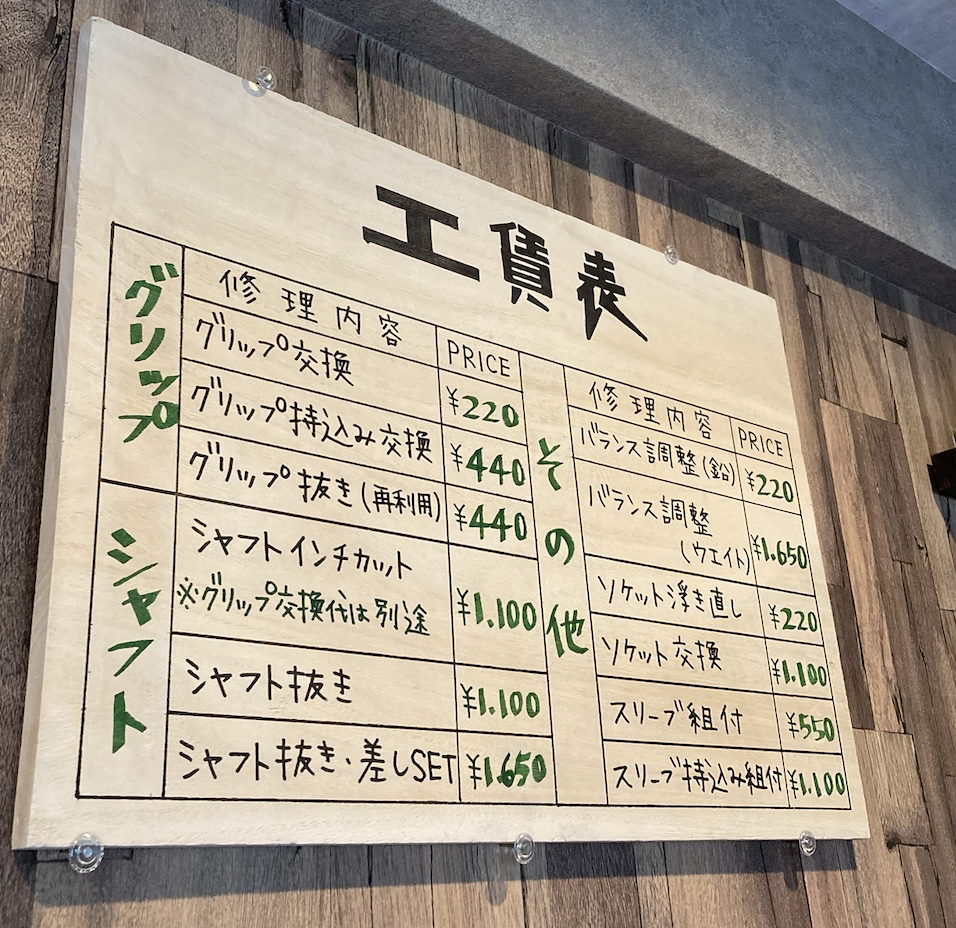 工賃表
グリップ
修理内容 PRICE
グリップ交換 ¥220
グリップ持込み交換 ¥440
グリップ抜き(再利用) ¥440
シャフト
シャフトインチカット
※グリップ交換代は別途 ¥1.100
シャフト抜き ¥1.100
シャフト抜き・差しSET ¥1.650
その他
修理内容 PRICE
バランス調整(鉛) ¥220
バランス調整
(ウエイト) ¥1.650
ソケット浮き直し ¥220
ソケット交換 ¥1.100
スリーブ組付 ¥550
スリーブ持込み組付 ¥1.100